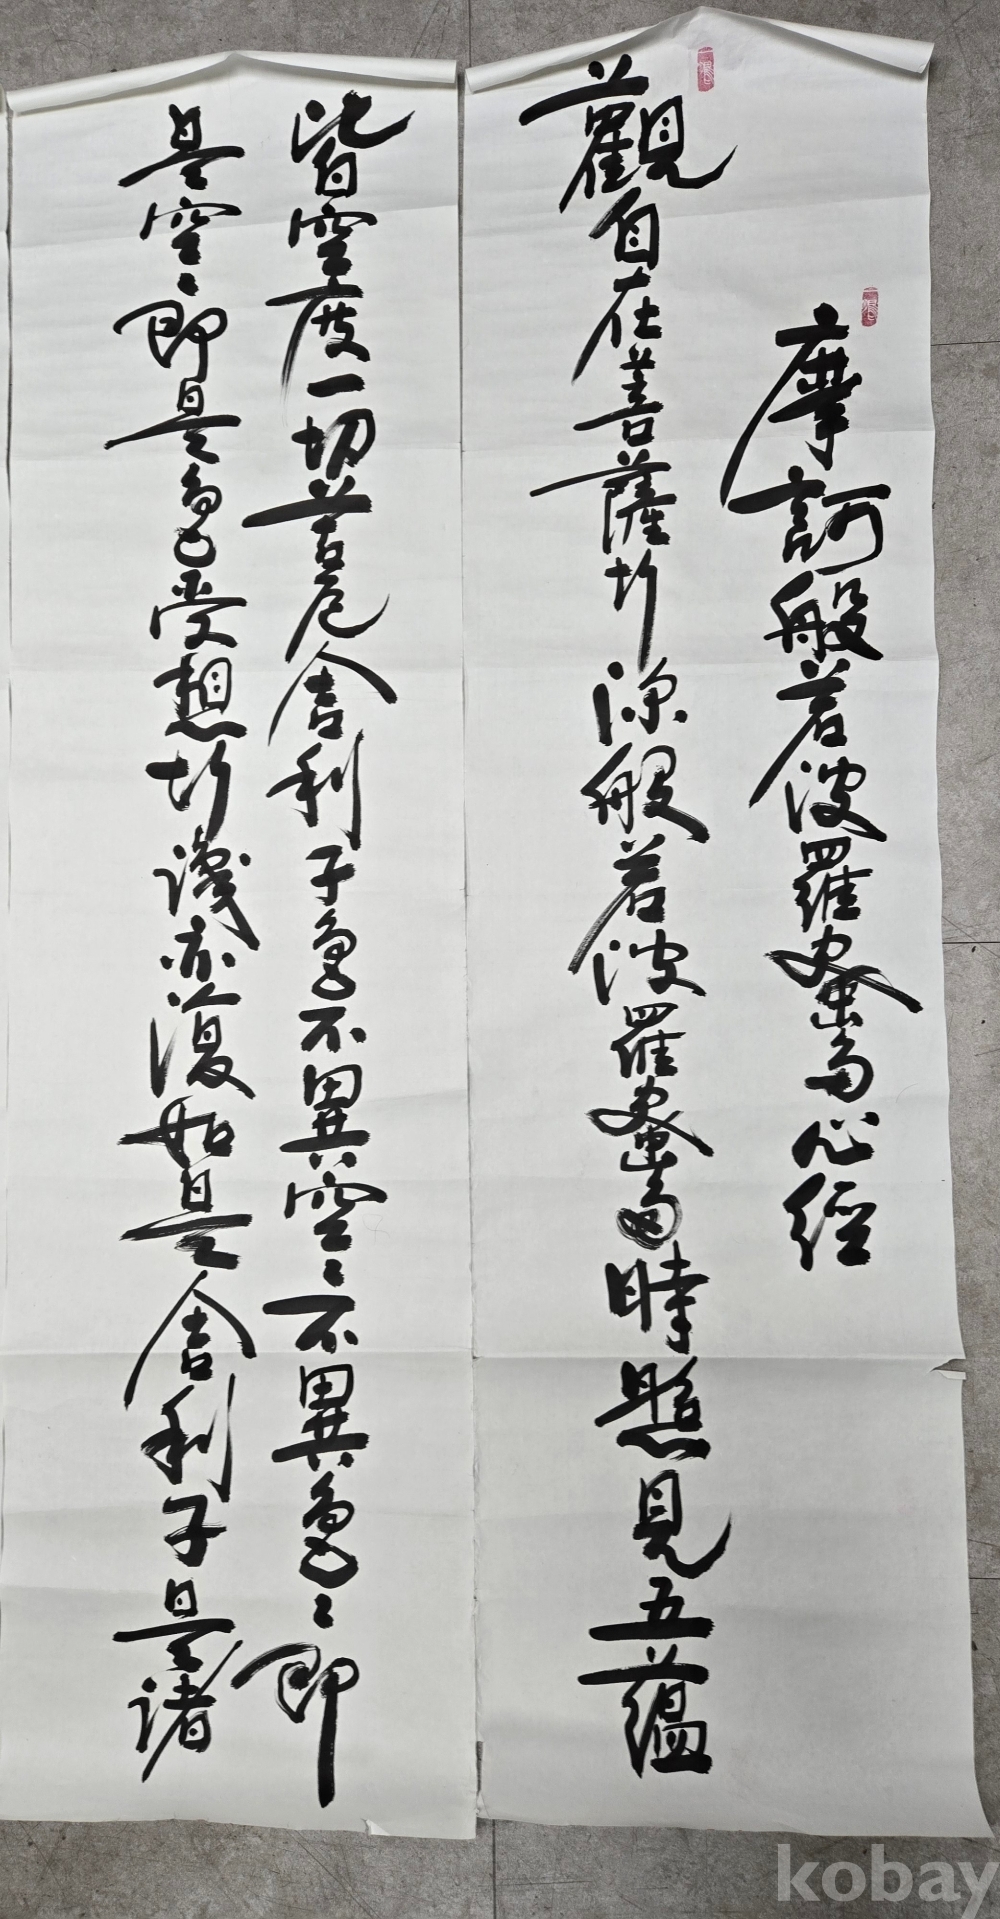 摩訶般若波羅蜜多心經
觀自在菩薩行深般若波羅蜜多時照見五蘊
皆空度一切苦厄舍利子色不異空〻不異色〻即
是空〻即是色受想行識亦復如是舍利子是諸
kobay